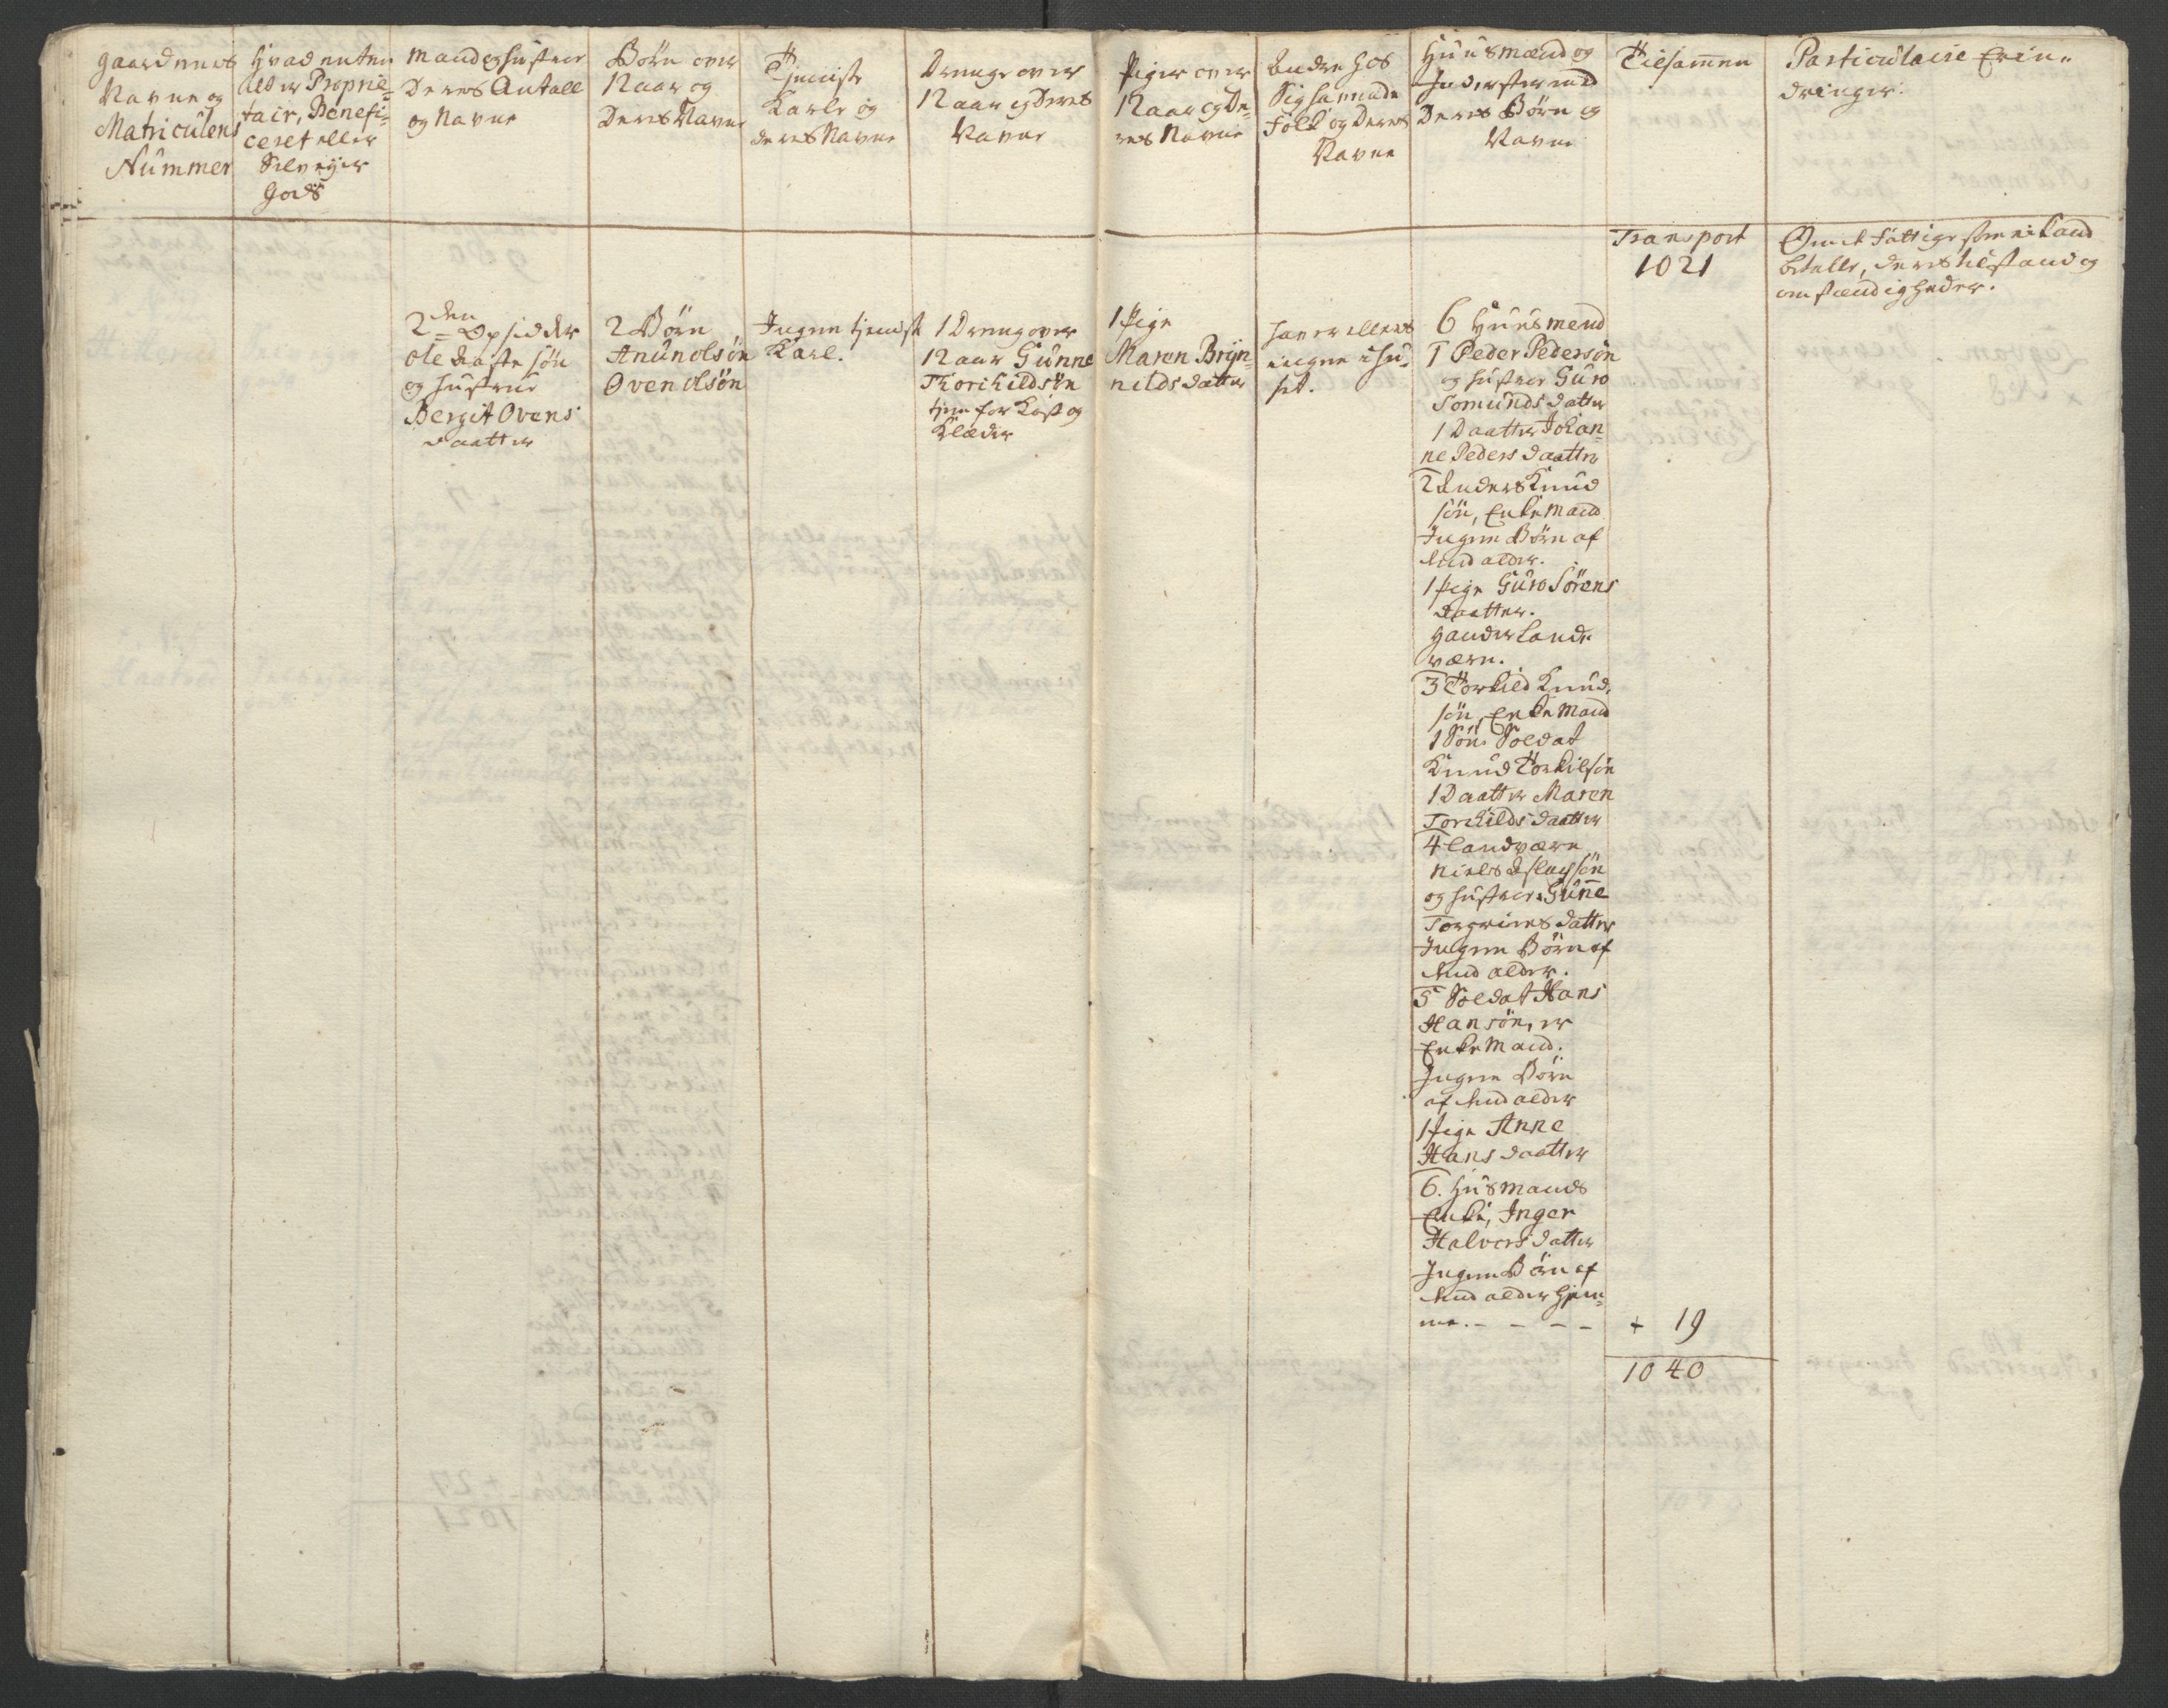 Gaardenes
Navne og
Matriculens
Nummer
Hvad enten
det er Proprie-
tair, Benefi-
ceret eller
Selv eyer
Gods
Mand og Hustrue
Deres Antall
og Navne
Börn over
12 aar og
Deres Navne
Tieniste
Karle og
deres Navne
Drenge over
12 aar og Deres
Navne
Piger over
12 aar og De-
res Navne
Andre hos
Sig havende
Folk og Deres
Navne
Huusmænd og
Inderster med
Deres Börn og
Navne
Tilsammen
Particulaire Erin-
dringer.
Transport
1021
Om de Fattige som ei kand
betalle, deres tilstand og
omstændigheder.
2den Opsidder
Ole Aaste sön
og Hustrue
Bergit Ovens
daatter
2 Börn
Anun Olsön
Oven Olsön
Ingen tieniste
Karl.
1 Dreng over
12 aar Gunne
Thorchildsön
tjene for Kost og
Klæder
1 Pige
Maren Bryn-
nilds datter
haver ellers
ingen i Hu-
set.
6 Huusmend
1 Peder Pedersön
og Hustrue Guro
Somunds datter
1 Daatter Johan-
ne Peders daatter
2 Anders Knud
sön, Enke Mand
Ingen Börn af
bemd alder.
1 Pige Guro Sörens
daatter.
Hand er Land
værn.
3 Torkild Knud-
sön, Enke Mand
1 Sön Soldat
Knud Torkilsön
1 Daatter Maren
Torchilds daatter
4 Landværn
Niels Aslagsön
og Hustrue Gunne
Torgrims datter
Ingen Börn af
bemd alder.
5 Soldat Hans
Hansön, er
Enke Mand.
Ingen Börn
af bemd alder
1 Pige Anne
Hans daatter
6. Huusmands
Enke, Inger
Halvors datter
Ingen Börn af
bemd alder hjem-
me. - - - -
+ 19
1040